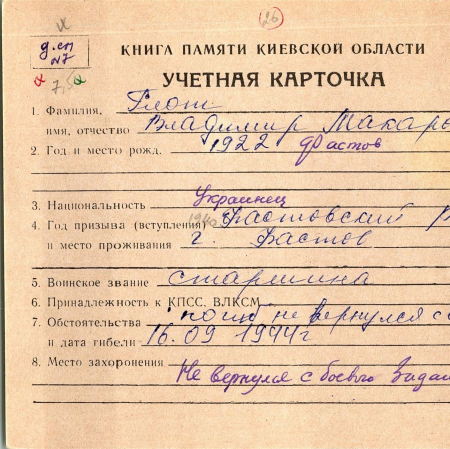 26
д.сп
№7
7,5
КНИГА ПАМЯТИ КИЕВСКОЙ ОБЛАСТИ
УЧЕТНАЯ КАРТОЧКА
1. Фамилия,
имя, отчество Владимир Макарь
2. Год и место рожд. 1922 Фастов
3. Национальность Украинец
4. Год призыва (вступления) 1940 Фастовский Р
и место проживания г. Фастов
5. Воинское звание старшина
6. Принадлежность к КПСС, ВЛКСМ
7. Обстоятельства погиб не вернулся с
и дата гибели 16.09 1944г
8. Место захоронения
Не вернулся с боевого Задан